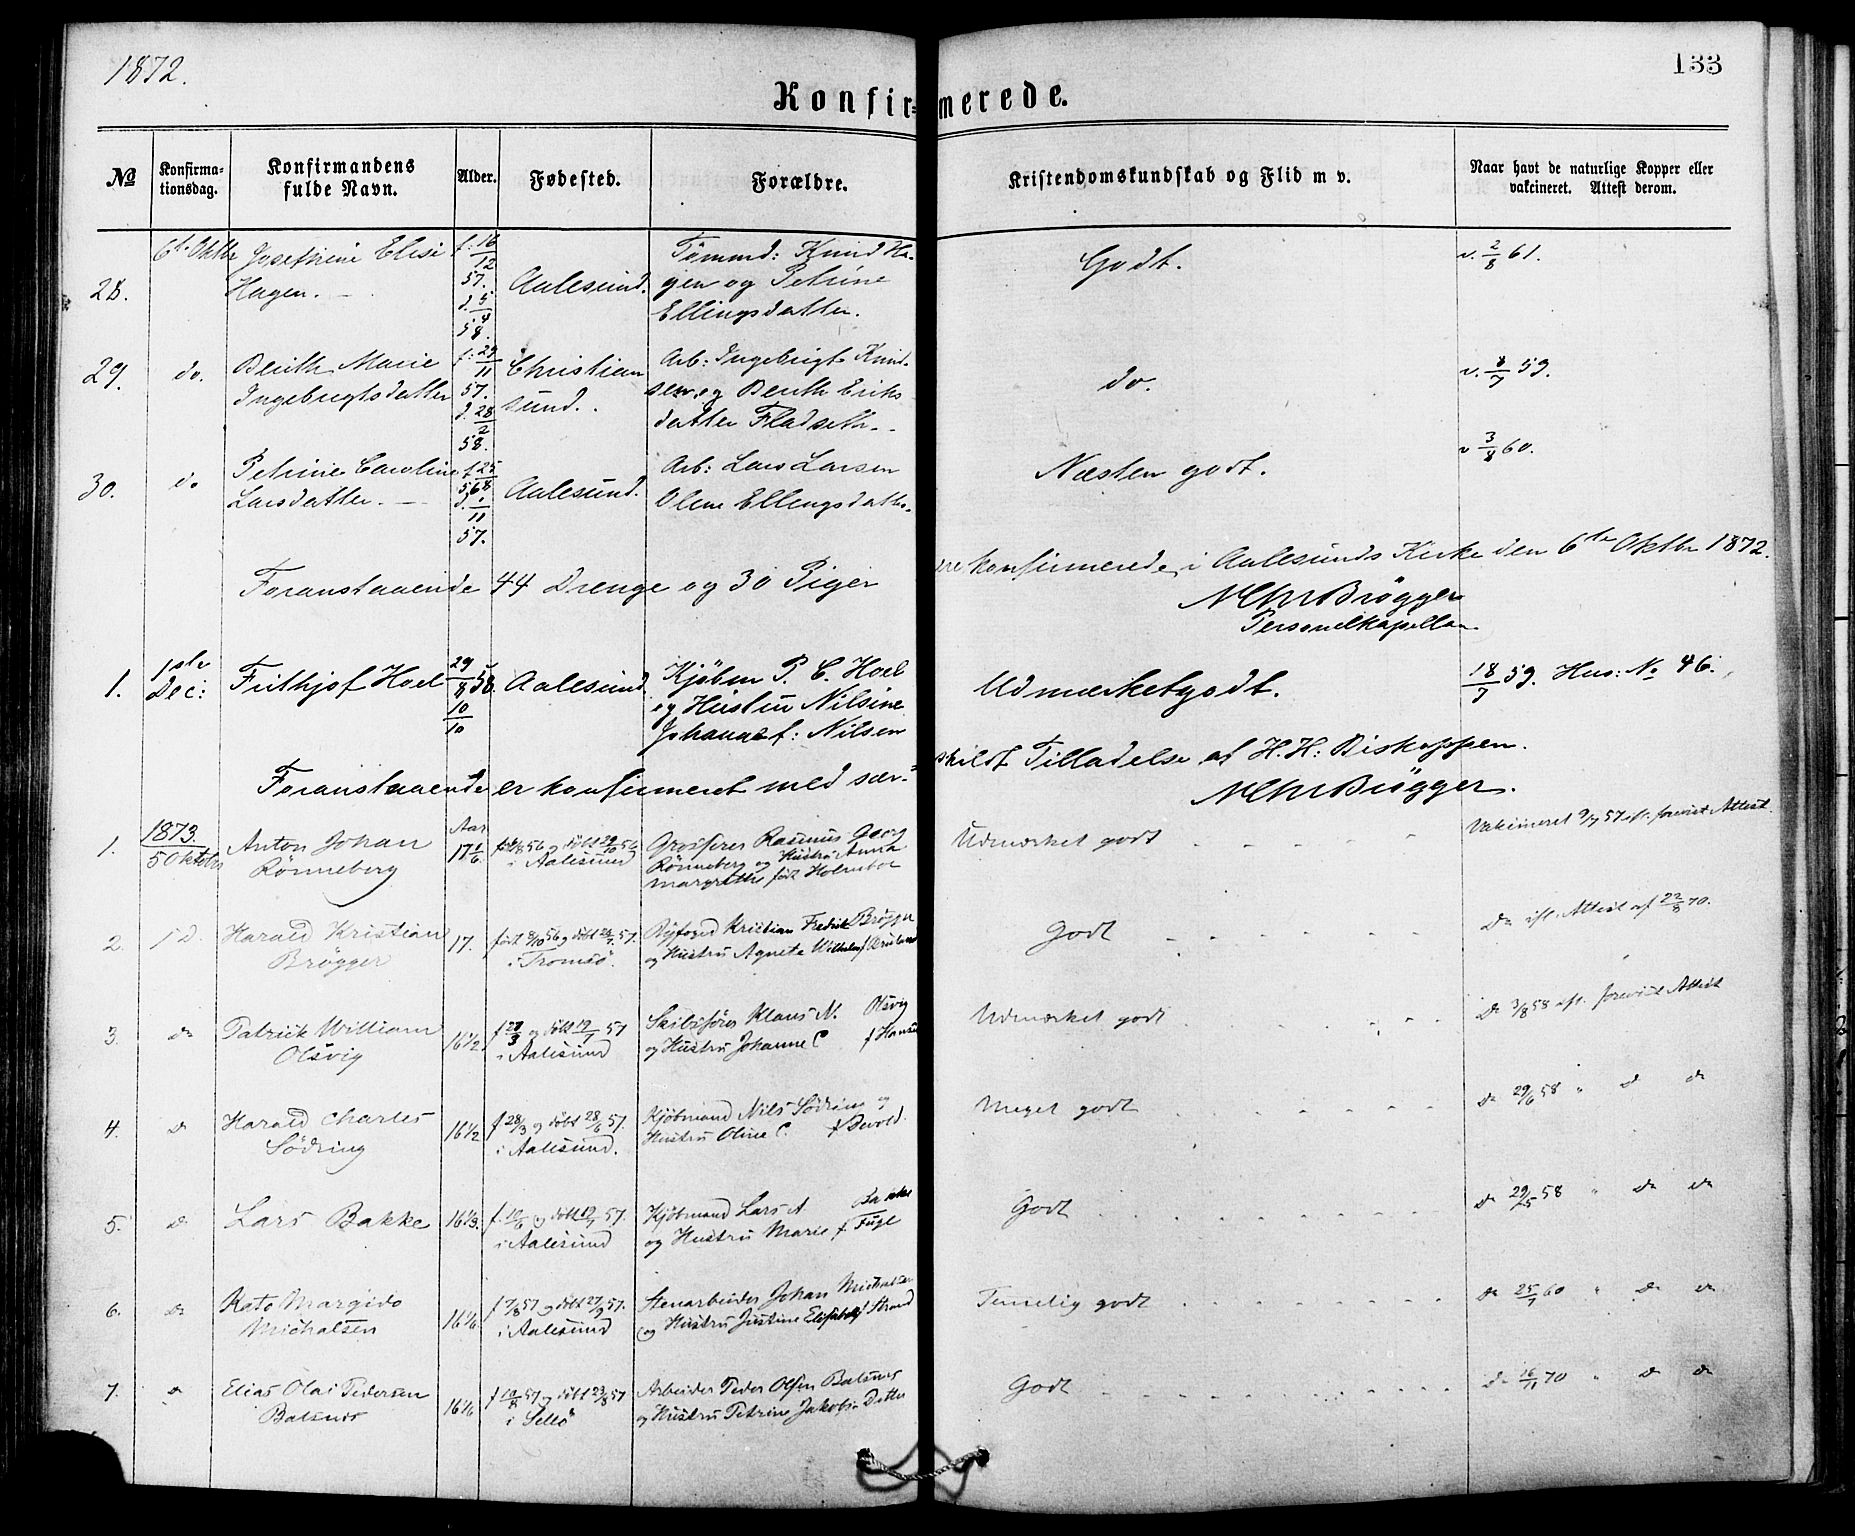 1872.
133
Konfirmerede.
No
Konfirma-
tionsdag.
Konfirmandens
fulde Navn.
Alder.
Fødested.
Forældre.
Kristendomskundskab og Flid m v.
Naar havt de naturlige Kopper eller
vakcineret. Attest derom.
28.
6te Oktbr
Josephine Elise
Hagen.
f: 16/12
57.
d. 5/4
58.
Aalesund.
Tømmd: Knud Ha-
gen og Petrine
Ellingsdatter.
Godt.
v. 2/8 61.
29.
do.
Berith Marie
Ingebrigtsdatter
f: 29/11
57.
d. 28/2
58.
Christian
sund.
Arb: Ingebrigt Knud-
sen og Berith Eriks
datter Fladseth.
do.
v. 8/7 59.
30.
do
Petrine Caroline
Larsdatter.
Aalesund.
Arb: Lars Larsen
Olene Ellingsdatter.
Næsten godt.
v 3/8 60.
Foranstaaende 44 Drenge og 30 Piger ere konfirmerede i Aalesunds Kirke den 6te Oktbr 1872.
MChrBrøgger
Personelkapellan.
1.
1ste
Dec:
Frithjof Hoel
29/8 58.
10/10
Aalesund
Kjøbm P. C. Hoel
og Hustru Nilsine
Johanna f: Nilsen
Udmærketgodt.
18/7 59. Hus: No 46.
Foranstaaende er konfirmeret med sær-skildt Tilladelse af H. H: Biskoppen.
MChrBrøgger.
1.
1873.
5 Oktober
Anton Johan
Rønneberg
Aar
17 1/6.
i Aalesund
Grosserer Rasmus Georg
Rønneberg og Hustru Anna
Margrethe født Holmboe
Udmærket godt
Vakcineret 9/7 57 ifl. forevist Attest
2.
D.
Harald Kristian
Brøgger
17.
født 8/10 56 og døbt 57.
i Tromsø.
Byfoged Kristian Fredrik Brøgger
og Hustru Agnete Wilhelm
Godt
Do ifl. Attest af 22/8 70.
3.
do
Patrick William
Olsvig
16 1/2
f. 27/3 og døbt 19/7 57
i Aalesund
Skibsfører Klaus N. Olsvig
og Hustru Johanne C f Hansen
Udmærket godt
Do 3/8 58 ifl. forevist Attest
4.
do
Harald Charles
Södring
16 1/2
f 28/3 og døbt 28/6 57.
i Aalesund.
Kjøbmand Nils Södring og
Hustru Oline C. f Devold.
Meget godt
Do 29/6 58 " do do
5.
do
Lars Bakke
16 1/3.
f. 10/6 og døbt 19/7 57.
i Aalesund
Kjøbmand Lars A Bakke
og Hustru Marie f Fugl
Godt
Do 29/5 58 " do do
6.
do
Kato Margido
Michalsen
16 1/6
f 7/8 57 og døbt 27/9 57.
i Aalesund
Stenarbeider Johan Michalsen
og Hustru Justine Elisabeth Strand
Temelig godt
Do 25/7 60 " do do
7.
do
Elias Olai Pedersen
Balsnes
16 1/6
f 10/8 57 og døbt 23/8 57
i Sellø
Arbeider Peder Olsen Balsnes
og Hustru Petrine Jakobs Datter
Godt
Do 16/11 70 " do do